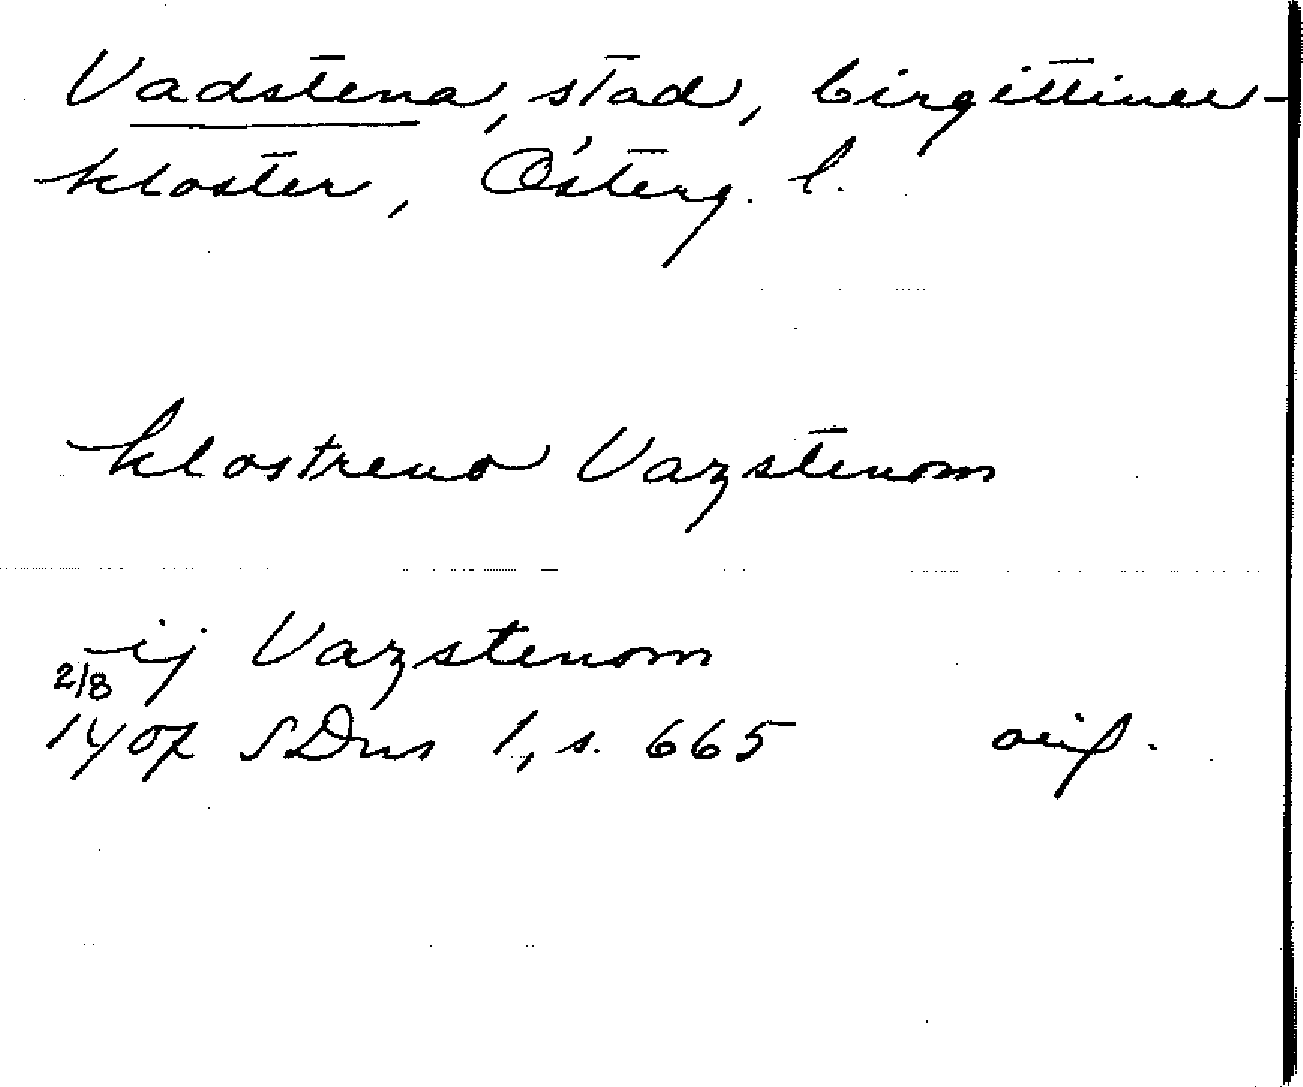 Vadstena, stad, birgittiner-
kloster, Österg. l.
klostreno Vazstenom
ij Vazstenom
2/8
1407 SDns 1, s. 665